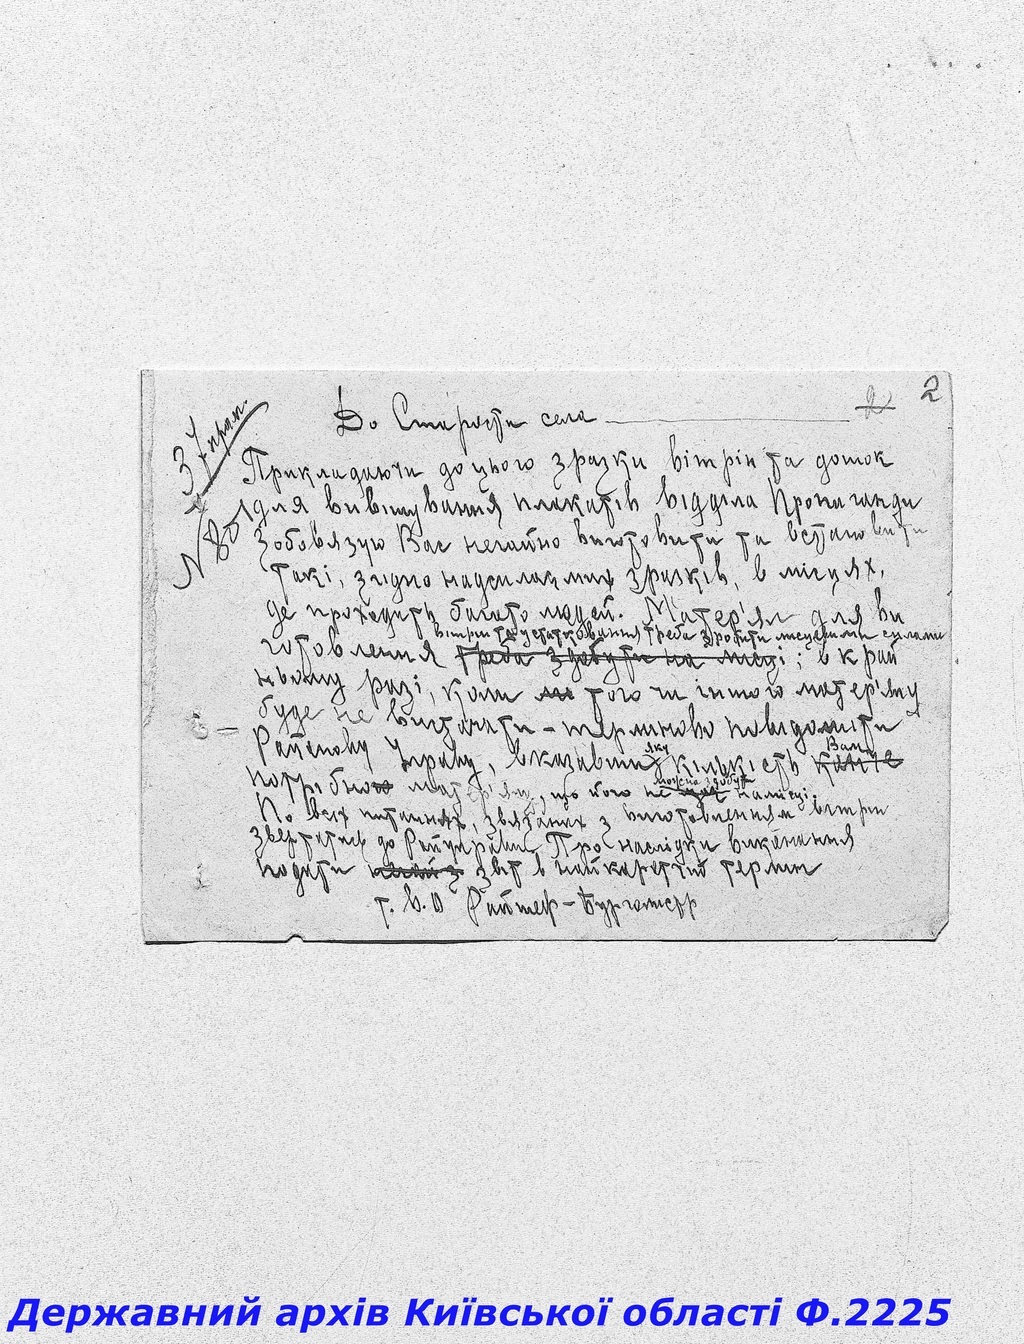 2 2
37 прим.
N 801
До Старости села
Прикладаючи до цього зразки вітрін та дошок
для вивішування плакатів відділа Пропаганди
Зобов'язую Вас негайно виготовити та встановити
такі, згідно надсилаємих зразків, в місцях,
де проходить багато людей. Матер'ял для ви
вітрин та устатковання треба зробити місцевими силами
готовлення треба здобути на місці; в край
ньому разі, коли не того чи іншого матер'ялу
буде не вистачати – терміново повідомити
Районову Управу, вказавши яку кількість Вам
потрібно матер'ялу, що його не можна здобути на місці.
По всіх питаннях, звязаних з виготовленням вітрин
звертатись до Райуправи. Про наслідки виконання
подати звіт в найкоротчий термін
т. в. о Райшеф – Бургомістр
Державний архів Київської області Ф.2225